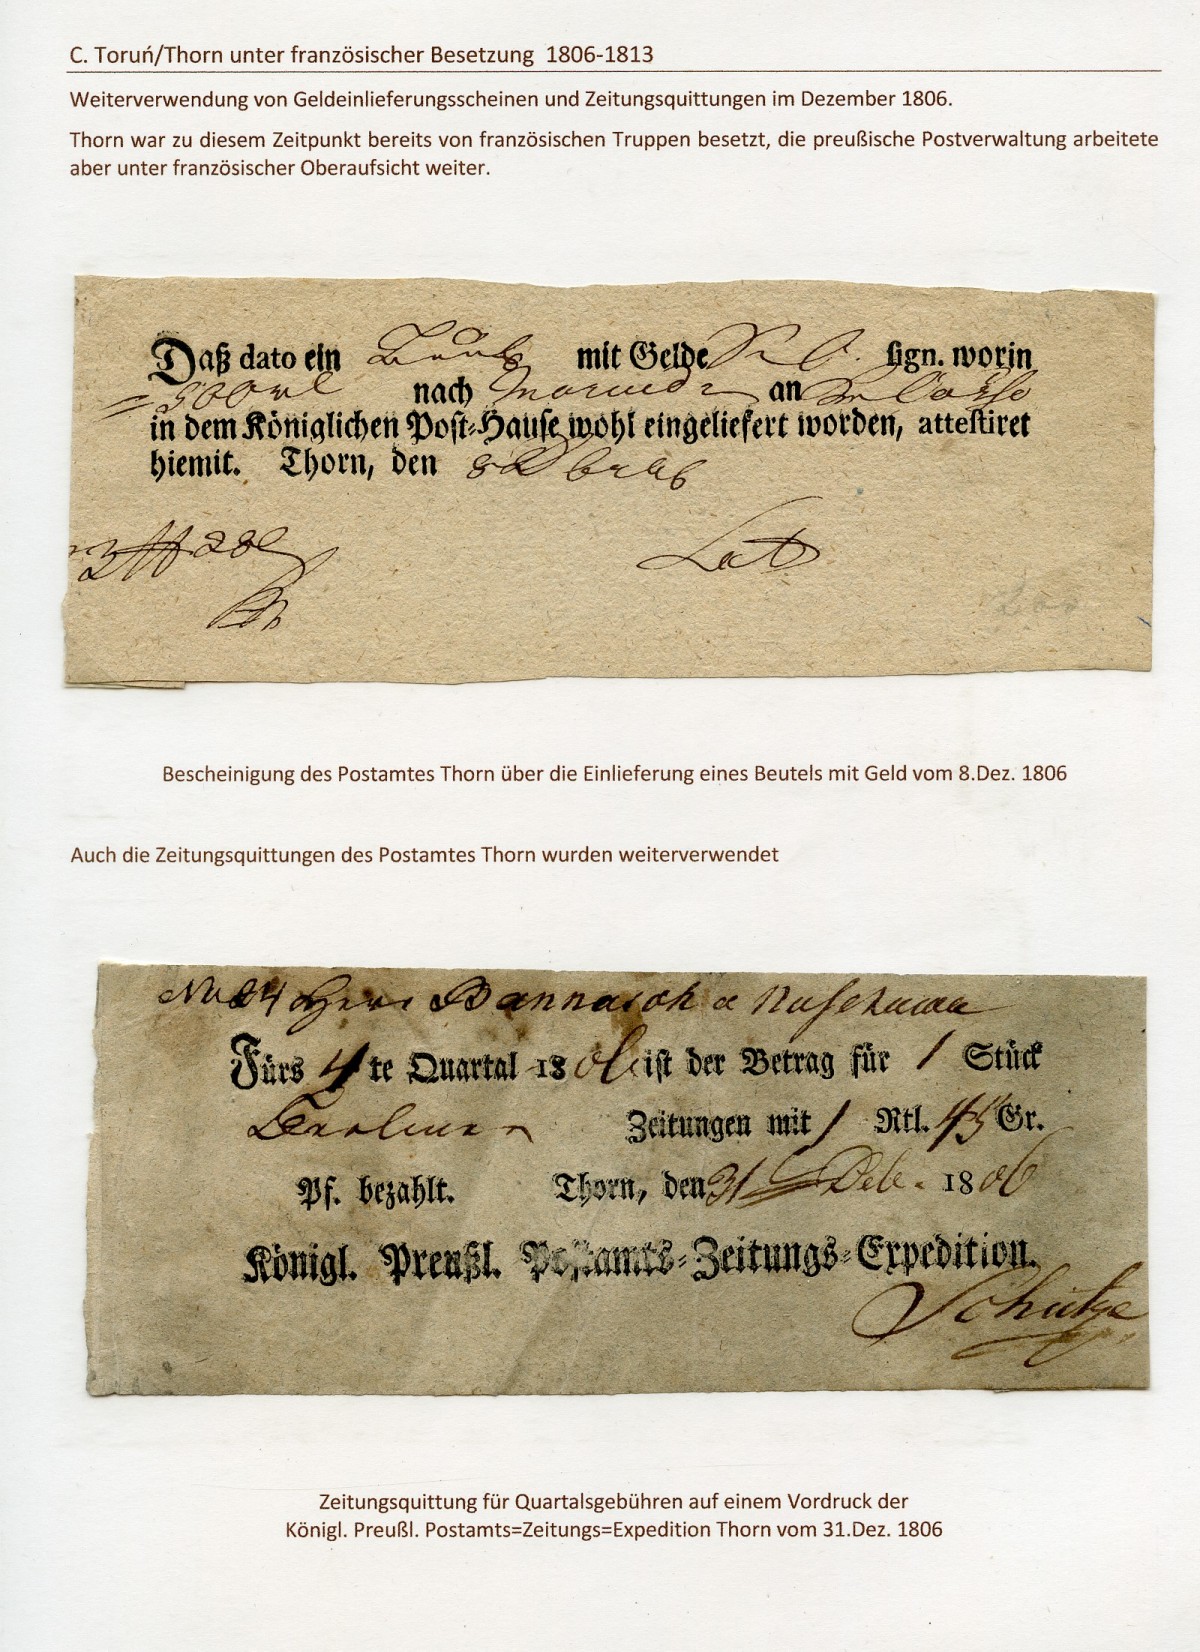 C. Toruń/Thorn unter französischer Besetzung 1806-1813
Weiterverwendung von Geldeinlieferungsscheinen und Zeitungsquittungen im Dezember 1806.
Thorn war zu diesem Zeitpunkt bereits von französischen Truppen besetzt, die preußische Postverwaltung arbeitete
aber unter französischer Oberaufsicht weiter.
Daß dato ein Beutel mit Gelde sgn. worin
500 rl nach an
in dem Königlichen Post-Hause wohl eingeliefert worden, attestiret
hiemit. Thorn, den 8
Bescheinigung des Postamtes Thorn über die Einlieferung eines Beutels mit Geld vom 8.Dez. 1806
Auch die Zeitungsquittungen des Postamtes Thorn wurden weiterverwendet
Herr Bannasch
Fürs 4 te Quartal 18 06 ist der Betrag für 1 Stück
Berliner Zeitungen mit 1 Rtl. 45 Gr.
Pf. bezahlt. Thorn, den 31 Deb. 18 06
Königl. Preußl. Postamts-Zeitungs-Expedition.
Schütze
Zeitungsquittung für Quartalsgebühren auf einem Vordruck der
Königl. Preußl. Postamts=Zeitungs=Expedition Thorn vom 31.Dez. 1806